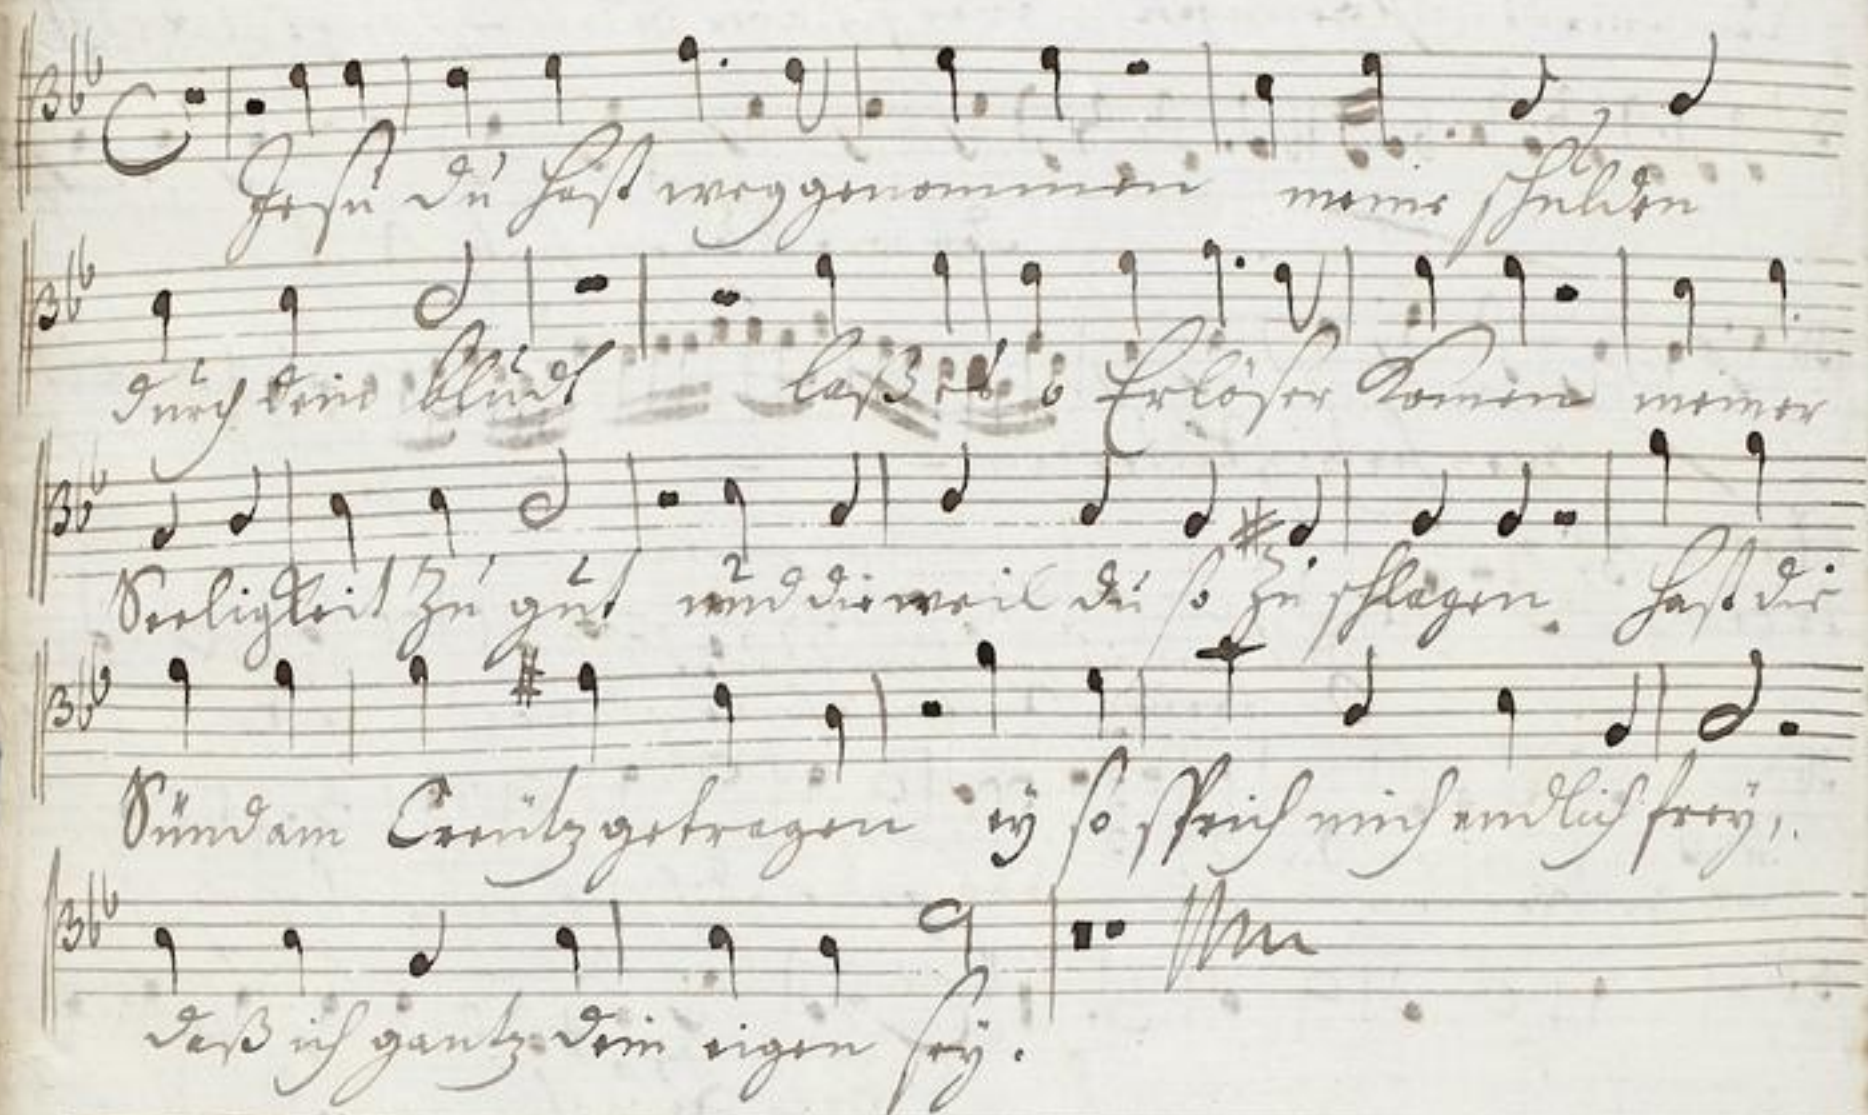 Jesu du hast weggenommen meine schulden
durch dein bludt laß es o Erlöser Komen meiner
Seeligkeit zu gut und dieweil du so zu schlagen hast die
Sünd am Creütz getragen ey so sprich mich endlich frey,
daß ich gantz dein eigen sey.